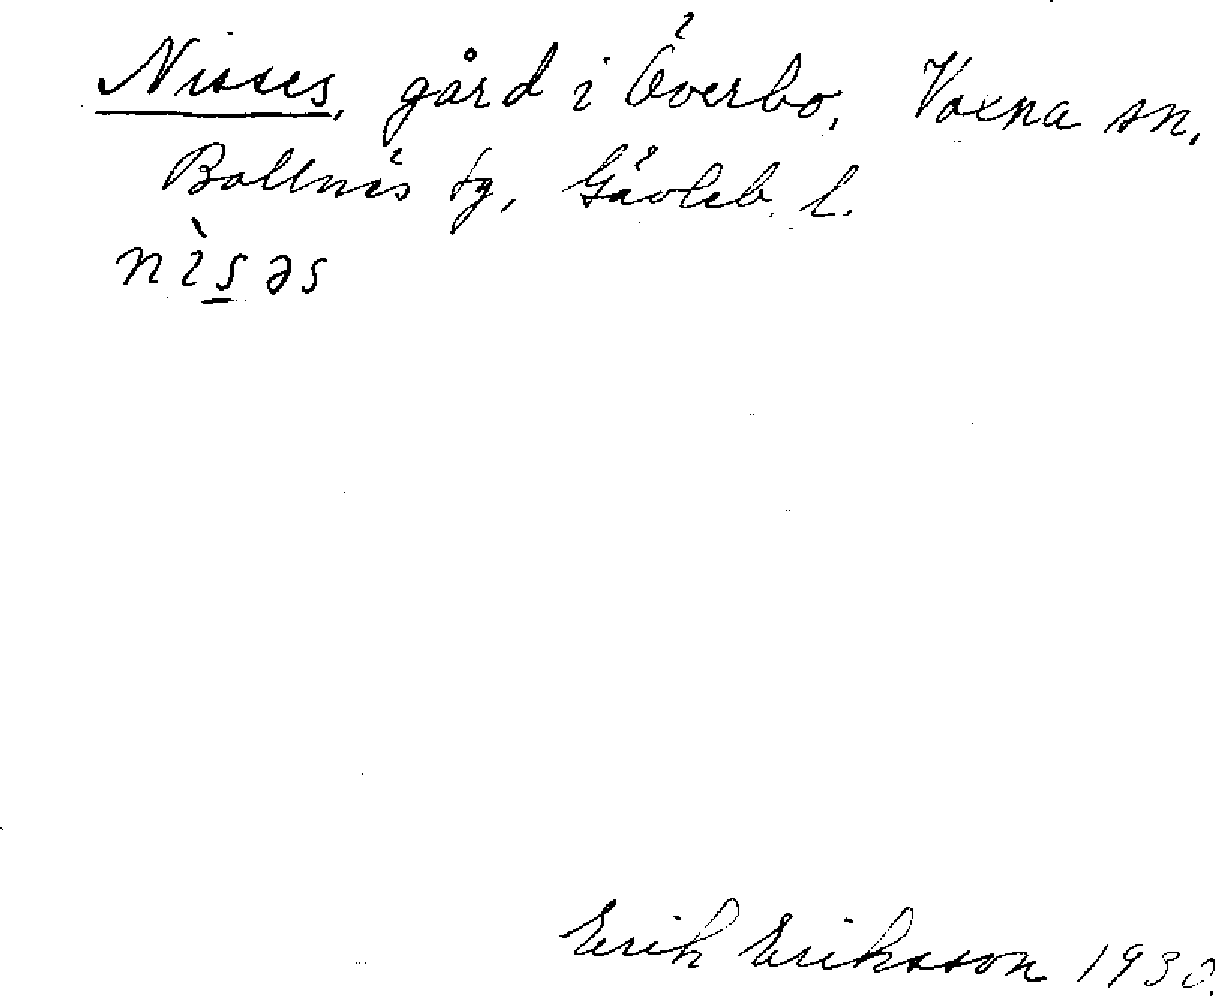 Nisses, gård i Överbo, Voxna sn,
Bollnäs tg, Gävleb. l.
nìs̲əs
Erik Eriksson 1930.